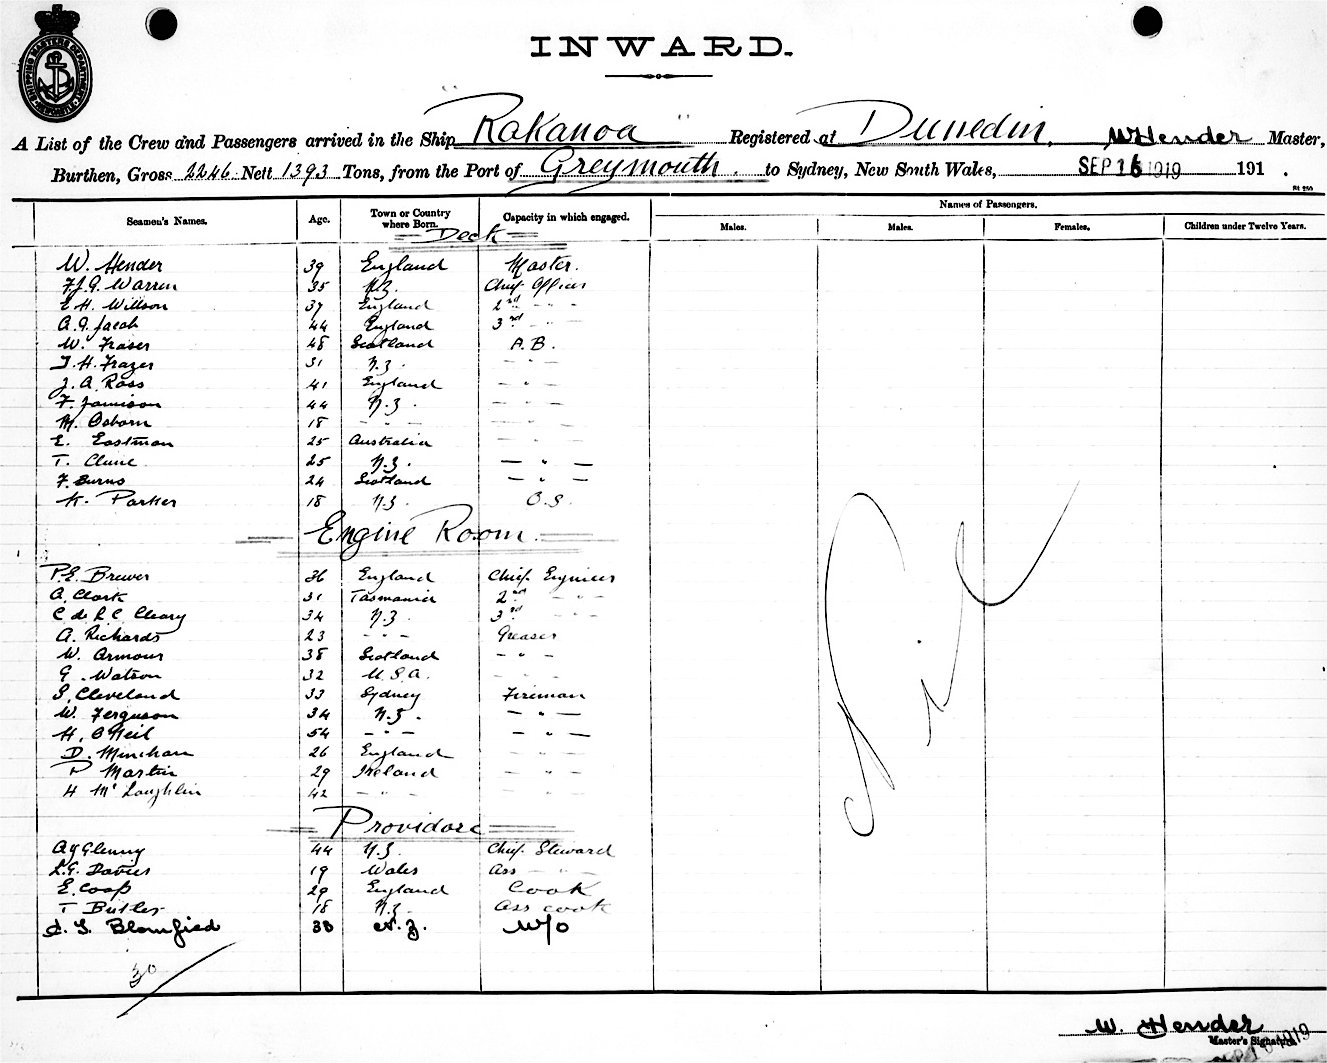 SHIPPING MASTERS DEPARTMENT NEWCASTLE
INWARD.
A List of the Crew and Passengers arrived in the Ship "Kakanoa" Registered at Dunedin, W Hender Master,
Burthen, Gross 2246 Nett 1393 Tons, from the Port of Greymouth. to Sydney, New South Wales, SEP 16 1919 191 .
Seamen's Names. Age. Town or Country where Born. Capacity in which engaged. Names of Passengers.
Males. Males. Females. Children under Twelve Years.
Deck
W. Hender 39 England Master.
F.J.G. Warren 35 N.Z. Chief Officer
E H. Willson 37 England 2nd - " -
A.J. Jacob 44 England 3rd - " -
W. Fraser 48 Scotland A.B.
J. H. Frazer 31 N.Z. - " -
J. A. Ross 41 England - " -
F. Jamieson 44 N.Z. - " -
M. Osborn 18 - " - - " -
E. Eastman 25 Australia - " -
T. Clune 25 N.Z. - " -
F. Burns 24 Scotland - " -
K. Parker 18 N.Z. O.S.
Engine Room
P.E. Brewer 36 England Chief Engineer
A. Clark 31 Tasmania 2nd - " -
C de L C Cleary 34 N.Z. 3rd - " -
A. Richards 23 - " - Greaser
W. Armour 38 Scotland - " -
G. Watson 32 U.S.A. - " -
S. Cleveland 33 Sydney Fireman
W. Ferguson 34 N.Z. - " -
H. O'Neil 54 - " - - " -
D. Minehan 26 England - " -
P Martin 29 Ireland - " -
H McLaughlin 42 - " - - " -
Nil
Providore
A J Glenny 44 N.Z. Chief Steward
L.G. Davies 19 Wales Ass - " -
E. Coop 29 England Cook
T Butler 18 N.Z. Ass cook
Blomfied 30 N.Z. W/o
30
W. Hender
Master's Signature
1919